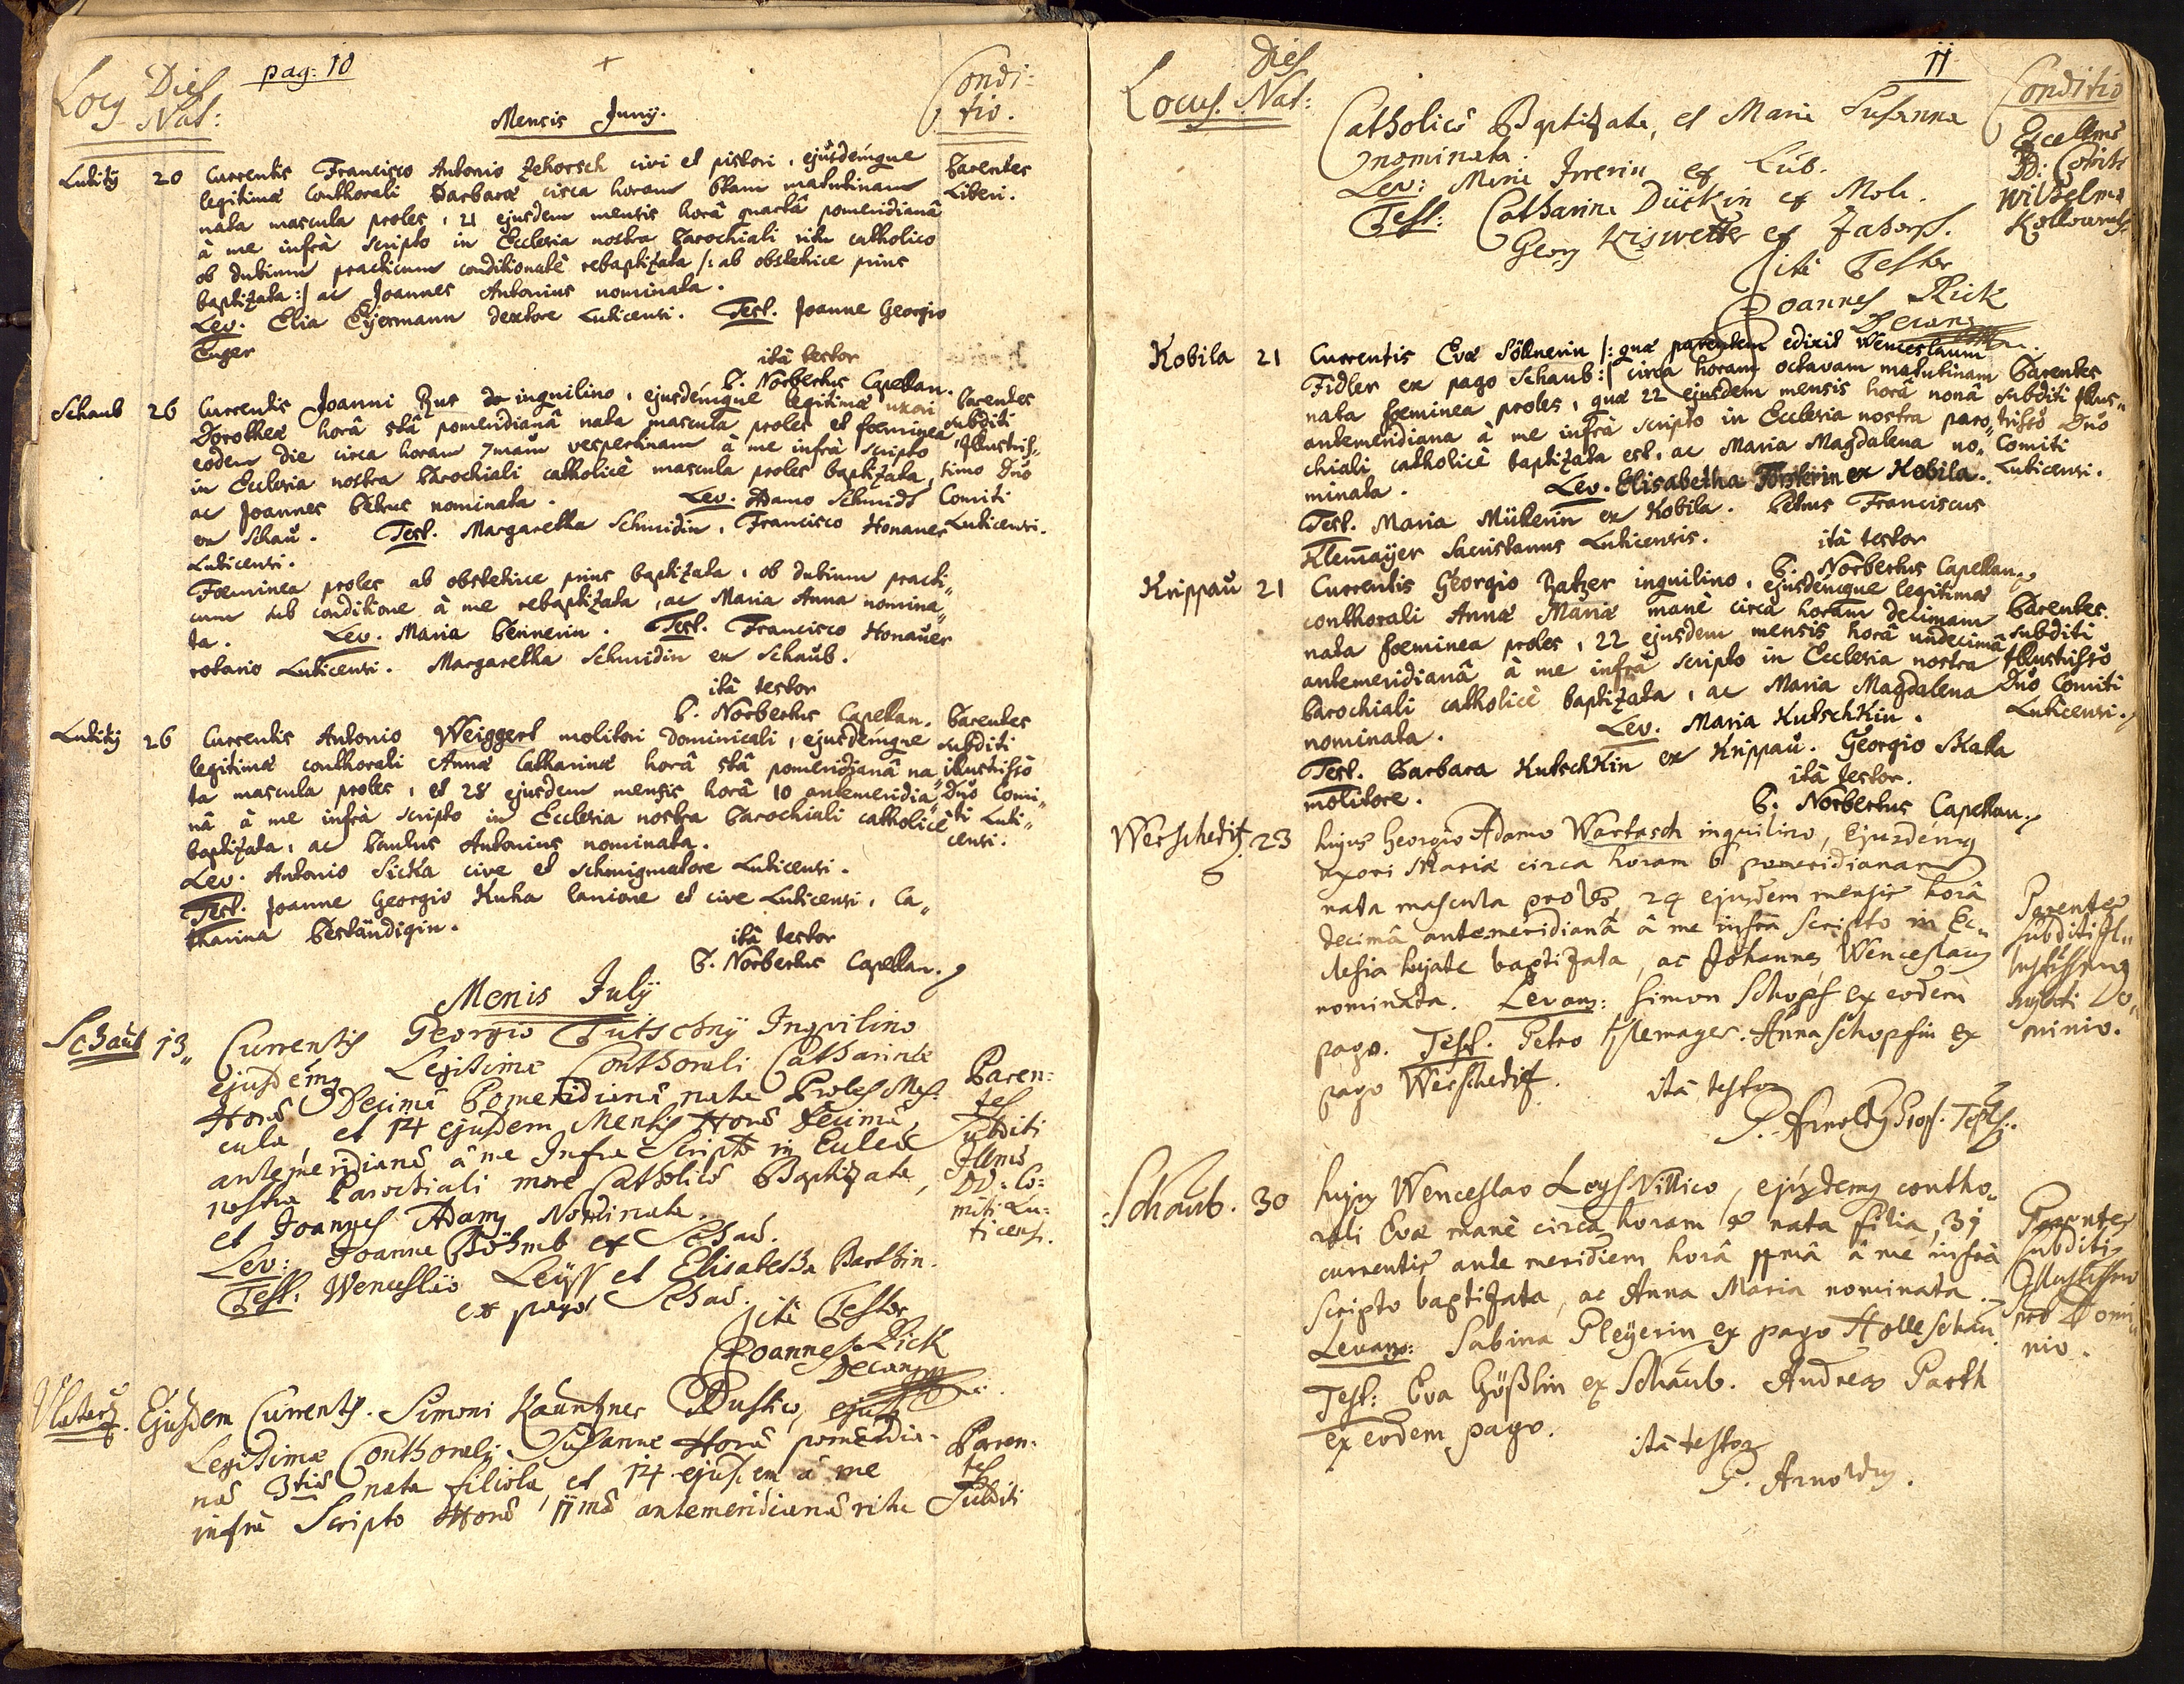 pag: 10
Locus Dies Nat:
Condi-
tio.
Mensis Junij.
Lutitij 20 Currentis Francisco Antonio Zehorsch civi et pistori, ejusdémque
legitimæ conthorali Barbaræ circa horam 6tam matutinam
nata mascula proles, 21 ejusdem mensis horâ quartâ pomeridianâ
à me infrà scripto in Ecclesia nostra Parochiali ritu catholico
ob dubium practicum conditionatè rebaptizata /: ab obstetrice prius
baptizata :/ ac Joannes Antonius nominata.
Lev. Elia Eÿermann Luticensi. Test. Joanne Georgio
Parentes
Liberi.
ità testor
P. Norbertus Capellan.
Schaub 26 Currentis Joanni Rus inquilino, ejusdémque legitimæ uxori
Dorotheæ horâ 5tâ pomeridianâ nata mascula proles et fœminea
eodem die circa horam 7mam vespertinam à me infrà scripto
in Ecclesia nostra Parochiali catholicè mascula proles baptizata,
ac Joannes Petrus nominata. Lev. Adamo Schmidt
ex Schau. Test. Margaretha Schmidin, Francisco Honauer
Luticensi.
Parentes
subditi
Illustris-
simo Dño
Comiti
Luticensi.
Fœminea proles ab obstetrice prius baptizata, ob dubium practi-
cum sub conditione à me rebaptizata, ac Maria Anna nomina-
ta. Lev. Maria Pennerin. Test. Francisco Honauer
rotario Luticensi. Margaretha Schmidin ex Schaub.
ità testor
P. Norbertus Capellan.
Lutitij 26 Currentis Antonio Weiggert molitori Dominicali, ejusdémque
legitimæ conthorali Annæ Catharinæ horâ 5tâ pomeridianâ na-
ta mascula proles, et 28 ejusdem mensis horâ 10 antemeridia-
nâ à me infrà scripto in Ecclesia nostra Parochiali catholicè
baptizata, ac Paulus Antonius nominata.
Lev. Antonio Sicka cive et schmigmatore Luticensi.
Test. Joanne Georgio Kuha lanione et cive Luticensi, Ca-
tharina Beständigin.
Parentes
subditi
illustrisso
Dño Comi-
ti Luti-
censi.
ità testor
P. Norbertus Capellan.
Menis Julÿ
Schaub 13 Currentis Georgio Tutschnÿ Inqvilino
ejusdemq Legitimæ Conthorali Catharinæ
Horâ Decimâ Pomeridianâ nata Proles Mas-
cula, et 14 ejusdem Mensis Horâ Decimâ
antemeridianâ à me Infra Scripto in Eccleâ
nostra Parochiali more Catholico Baptizata,
et Joannes Adamq Nominata.
Lev: Joanne Böhmb ex Schau.
Test: Wenceslao Leÿss et Elisabetha Barthin.
ex pago Schau.
Paren-
tes
Subditi
Illmo
DD: Co-
miti Lu-
ticens.
ità Testor
Joannes Rick
Decanq
Ejusdem Currentis. Simoni Kauntzner Rustico, ejusdq
Legitimæ Conthorali Susannæ Horâ pomeridia-
nâ 3tiâ nata filiola, et 14 ejusdem à me
infrà Scripto Horâ 11mâ antemeridianâ ritu
Paren-
tes
Subditi
11
Locus. Dies Nat:
Conditio
Catholicô Baptizata, et Maria Susanna
nominata.
Lev: Maria Irrerin ex Lub.
Test: Catharina Dückin ex Mola.
Georg Kiswetter ex Zahorz.
Excellmo
D: Comiti
Wilhelmo
Kollowrath.
ità Testor
Joannes Rick
Decanq
Kobila 21 Currentis Eva Söllnerin /: quæ parentem edixit Wenceslaum
Fidler ex pago Schaub :/ circa horam octavam matutinam
nata fœminea proles, quæ 22 ejusdem mensis horâ nonâ
antemeridiana à me infrà scripto in Ecclesia nostra paro-
chiali catholicè baptizata est, ac Maria Magdalena no-
minata. Lev. Elisabetha Försterin ex Kobila.
Test. Maria Müllerin ex Kobila. Petrus Franciscus
Klemaÿer Sacristanus Luticensis.
Parentes
subditi Illus-
trisso Dño
Comiti
Luticensi.
ità testor
P. Norbertus Capellan.
Krippau 21 Currentis Georgio Zatzer inquilino, ejusdémque legitimæ
conthorali Annæ Mariæ manè circa horam decimam
nata fœminea proles, 22 ejusdem mensis horâ undecimâ
antemeridianâ à me infrà scripto in Ecclesia nostra
Parochiali catholicè baptizata, ac Maria Magdalena
nominata. Lev. Maria Kutschkin.
Test. Barbara Kutschkin ex Krippau. Georgio Skalla
molitore.
Parentes
subditi
Illustrisso
Dño Comiti
Luticensi.
ità testor.
P. Norbertus Capellan.
Werscheditz 23 hujus Georgio Adamo Wartasch inquilino, Ejusdémq
uxori Mariæ circa horam 6 pomeridianam
nata mascula proles, 24 ejusdem mensis horâ
decimâ antemeridianâ à me infrà Scripto in Ec-
clesia hujate baptizata, ac Johannes Wenceslaus
nominata. Levans: Simon Schopf ex eodem
pago. Test. Petro Klemayer. Anna Schopfin ex
pago Werscheditz.
Parentes
subditi Il-
lustrissimo
hujati Do-
minio.
ità testor
P. Arnoldq Prof. Tepl.
Schaub. 30 hujus Wenceslao Loys Villico, ejusdemq contho-
rali Evæ manè circa horam 8 nata filia, 31
currentis ante meridiem horâ 11mâ à me infrà
scripto baptizata, ac Anna Maria nominata.
Levans: Sabina Pleÿerin ex pago Holleschau
Test: Eva Gößlin ex Schaub. Andreas Parth
ex eodem pago.
Parentes
subditi
Illustrissimo
Domi-
nio.
ità testor
P. Arnoldq.